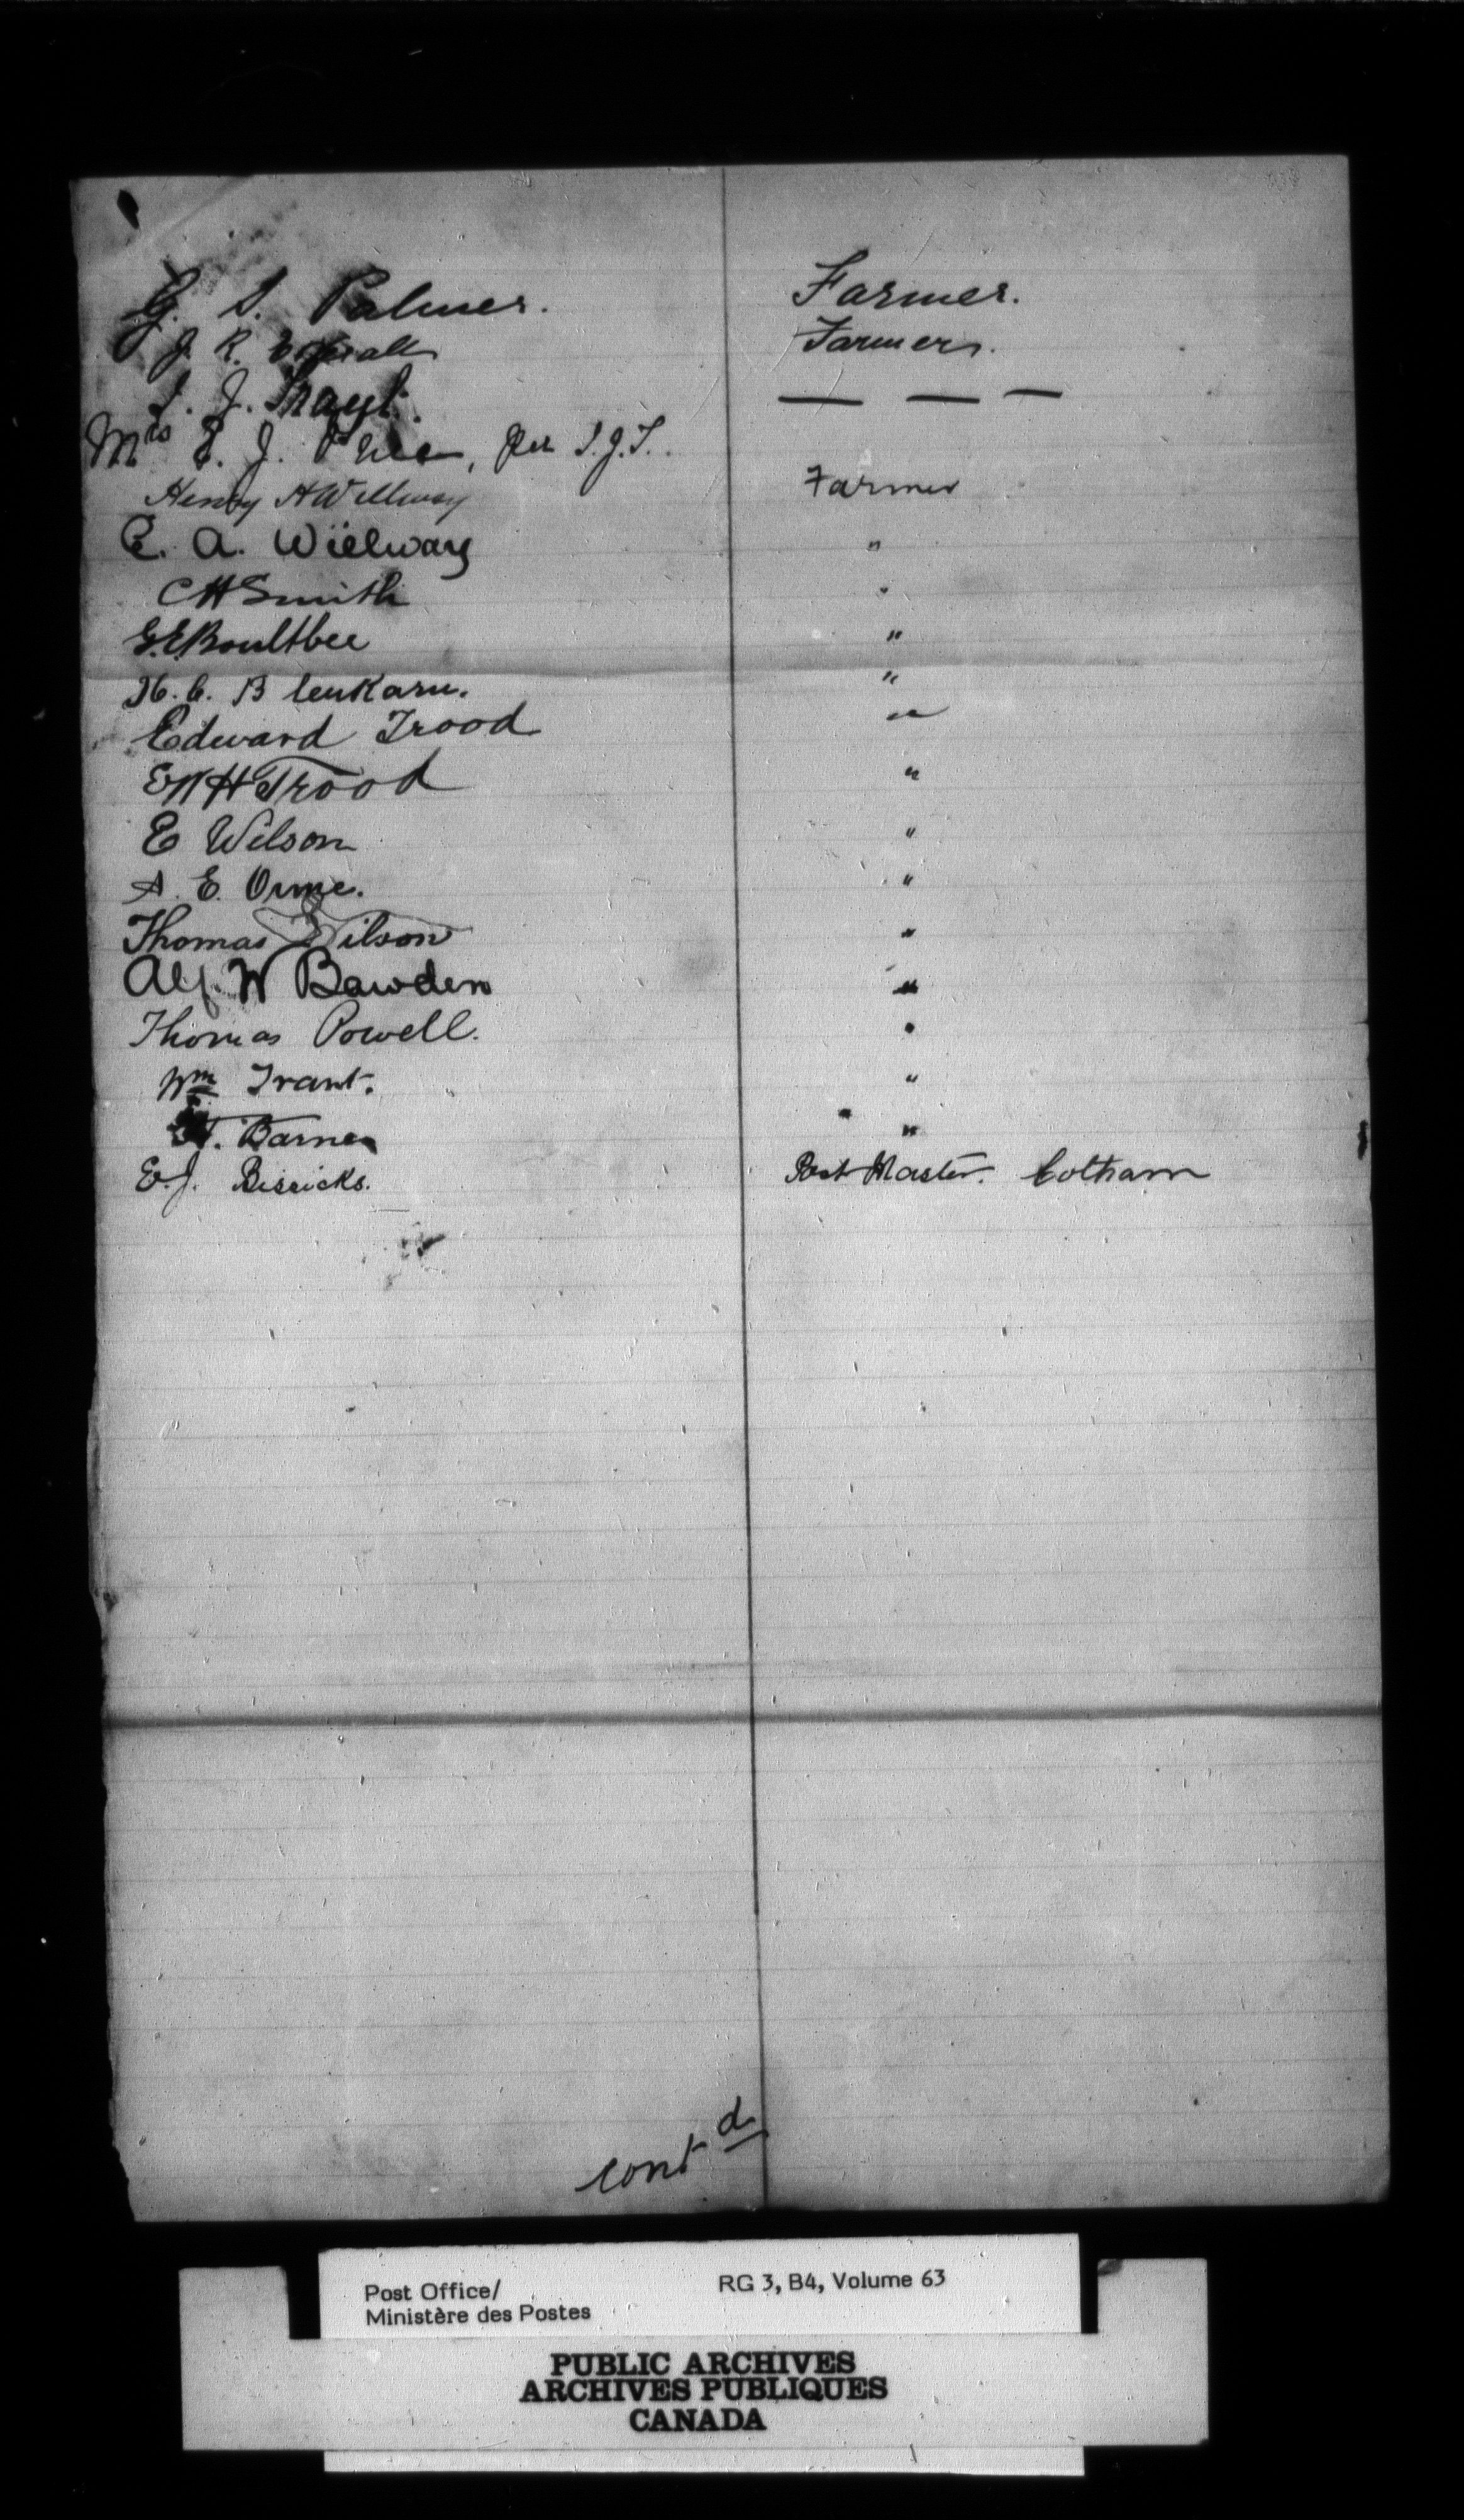 G. S. Palmer. Farmer.
J. R. Farmer.
S. J. — — —
Mrs E. J. Per S.J.T.
Henry H Wellway Farmer
E. A. Wielway "
C H Smith "
G.E. Boultbee "
H. C. B lenkarn. "
Edward Trood "
E W H Trood "
E Wilson "
A. E. Orme. "
Thomas Wilson "
Alf. W Bawden "
Thomas Powell. "
Wm Trant. "
Barnes "
E. J. Post Master. Cotham
cont d
Post Office/ RG 3, B4, Volume 63
Ministère des Postes
PUBLIC ARCHIVES
ARCHIVES PUBLIQUES
CANADA